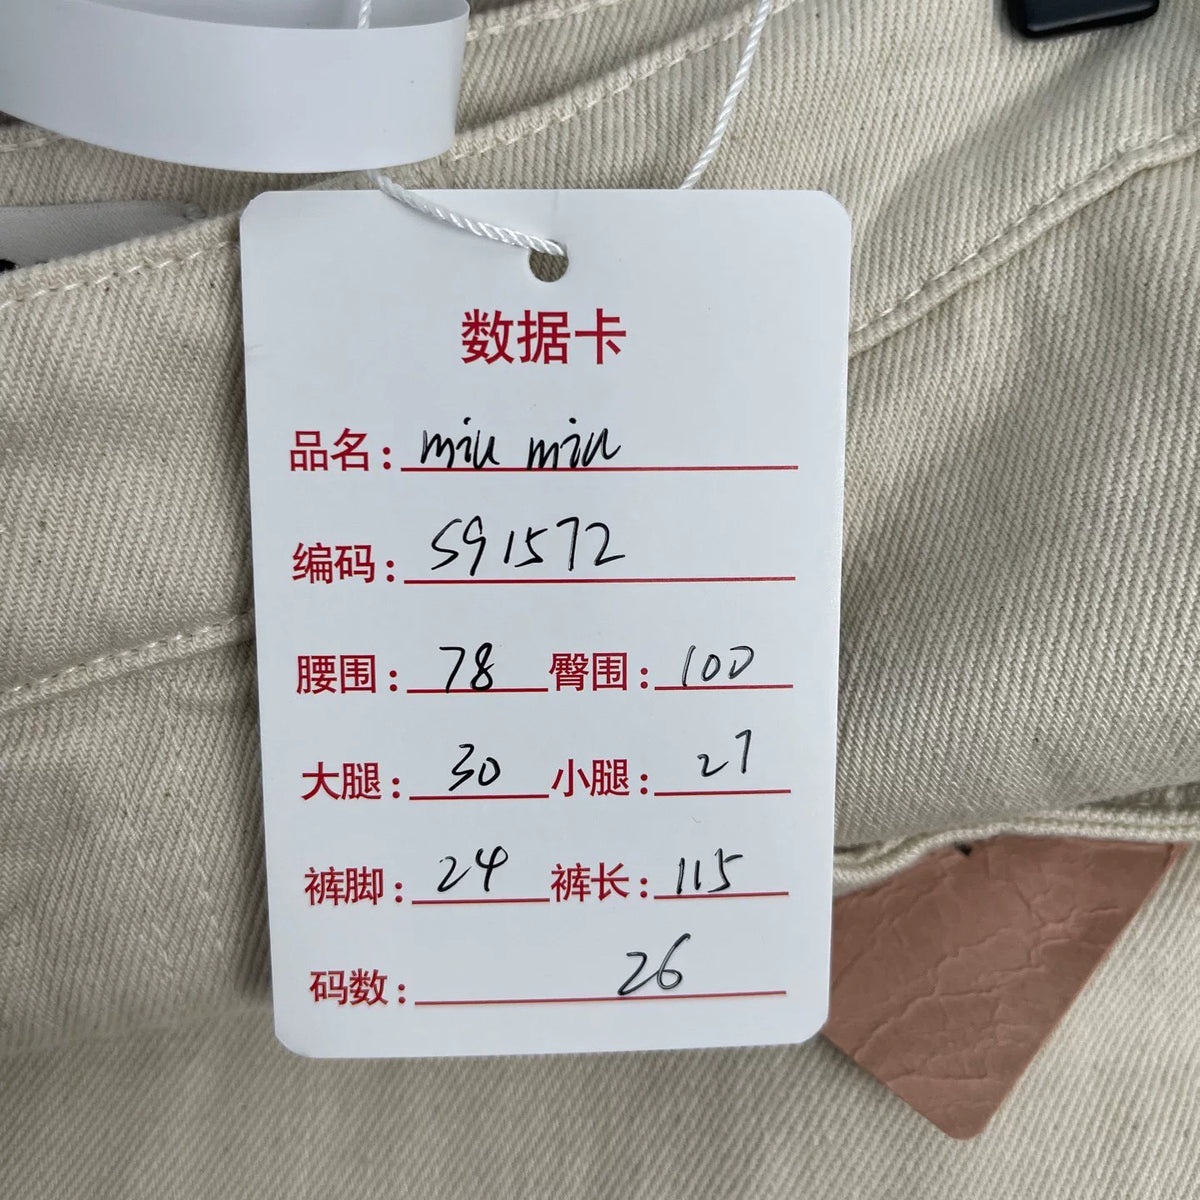 数据卡
品名: miu miu
编码: S91572
腰围: 78 臀围: 100
大腿: 30 小腿: 27
裤脚: 24 裤长: 115
码数: 26